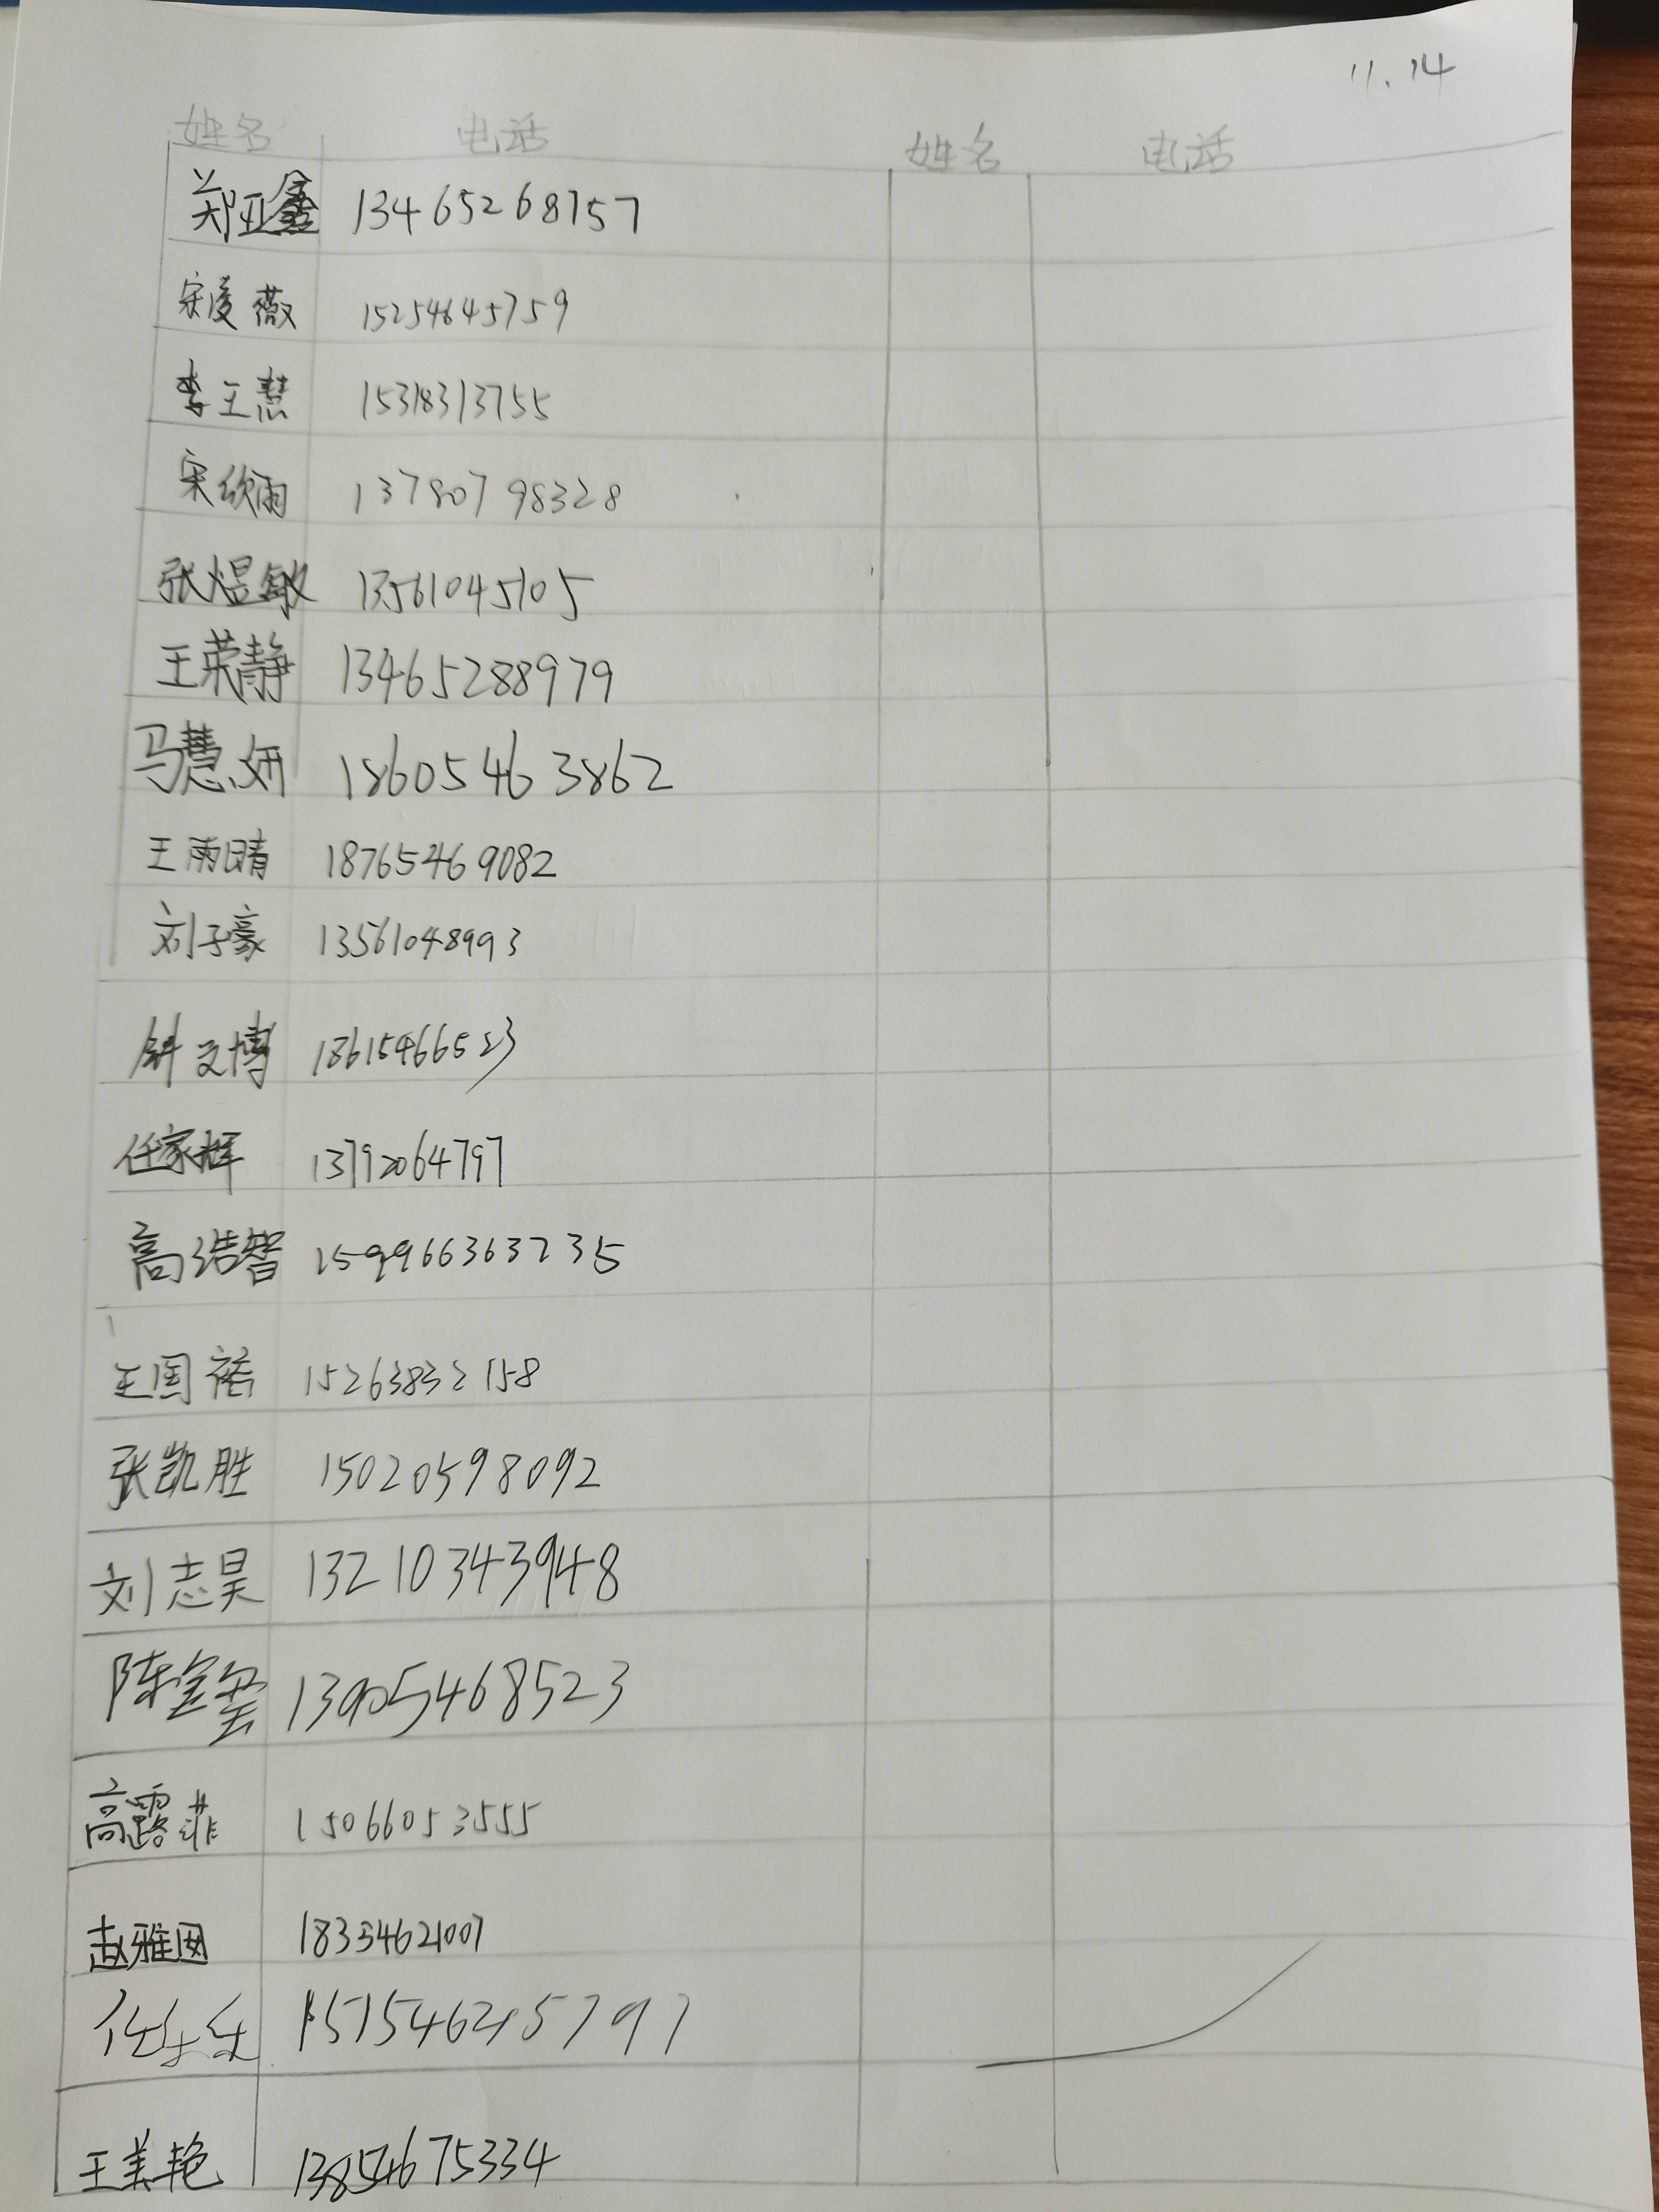 11.14
姓名 电话 姓名 电话
郑亚鑫 13465268757
宋凌薇 15254645759
李王慧 15318313755
宋欣雨 13780798328
张煜敏 13561045105
王荣静 13465288979
马慧妍 18605463862
王雨晴 18765469082
刘子豪 13561048993
文博 18615466523
任家辉 13792064797
高浩智 1599663637235
王国裕 15263832158
张凯胜 15020598092
刘志昊 13210343948
陈宝玺 13905468523
高露菲 15066053555
赵雅囡 18354621007
任乐乐
王美艳 13854675334